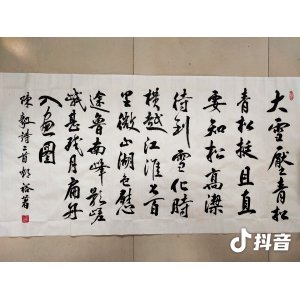 大雪壓青松
青松挺且直
要知松高潔
待到雪化時
橫越江淮七百
里微山湖色慰
途魯南峰影嵯
峨甚殘月扁舟
入畫圖
陳毅詩二首
抖音